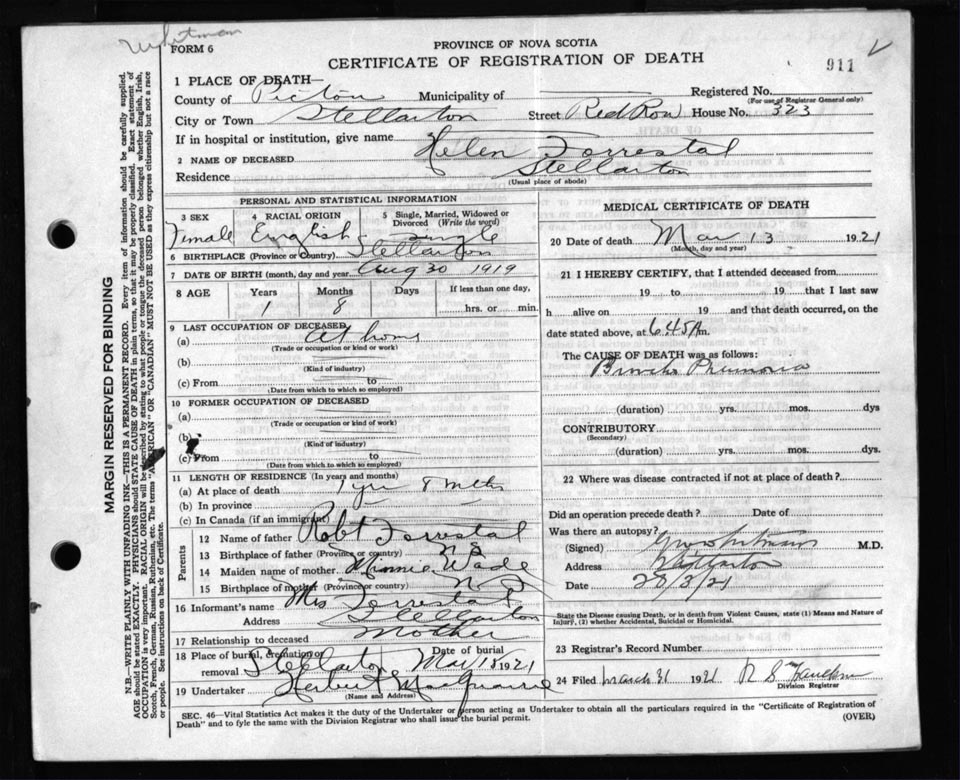 Whitman
FORM 6
PROVINCE OF NOVA SCOTIA
CERTIFICATE OF REGISTRATION OF DEATH
911
1 PLACE OF DEATH—
County of Pictou Municipality of Registered No.
(For use of Registrar General only)
City or Town Stellarton Street Red Row House No. 323
If in hospital or institution, give name
2 NAME OF DECEASED Helen Forrestal
Residence Stellarton
(Usual place of abode)
PERSONAL AND STATISTICAL INFORMATION
3 SEX 4 RACIAL ORIGIN 5 Single, Married, Widowed or Divorced (Write the word)
Female English Single
6 BIRTHPLACE (Province or Country) Stellarton
7 DATE OF BIRTH (month, day and year) Aug 30 1919
8 AGE Years Months Days If less than one day,
1 8 hrs. or min.
9 LAST OCCUPATION OF DECEASED
(a) At home
(Trade or occupation or kind or work)
(b)
(Kind of industry)
(c) From to
(Date from which to which so employed)
10 FORMER OCCUPATION OF DECEASED
(a)
(Trade or occupation or kind of work)
(b)
(Kind of industry)
(c) From to
(Date from which to which so employed)
11 LENGTH OF RESIDENCE (In years and months)
(a) At place of death 1 yr 8 mths
(b) In province
(c) In Canada (if an immigrant)
Parents
12 Name of father Robt Forrestal
13 Birthplace of father (Province or country) N S
14 Maiden name of mother Minnie Wade
15 Birthplace of mother (Province or country) N S
16 Informant's name Mrs Forrestal
Address Stellarton
17 Relationship to deceased Mother
18 Place of burial, cremation or removal Stellarton Date of burial Mar 15 1921
19 Undertaker Herbert MacQuarrie
(Name and Address)
MEDICAL CERTIFICATE OF DEATH
20 Date of death Mar 13 1921
(Month, day and year)
21 I HEREBY CERTIFY, that I attended deceased from
19 to 19 that I last saw
h alive on 19 and that death occurred, on the
date stated above, at 6 45 A m.
The CAUSE OF DEATH was as follows:
Broncho Pneumonia
(duration) yrs. mos. dys
CONTRIBUTORY
(Secondary)
(duration) yrs. mos. dys.
22 Where was disease contracted if not at place of death?
Did an operation precede death? Date of
Was there an autopsy?
(Signed) Whitman M.D.
Address Stellarton
Date 28/3/21
State the Disease causing Death, or in death from Violent Causes, state (1) Means and Nature of
Injury, (2) whether Accidental, Suicidal or Homicidal.
23 Registrar's Record Number
24 Filed March 31 1921
Division Registrar
SEC. 46—Vital Statistics Act makes it the duty of the Undertaker or person acting as Undertaker to obtain all the particulars required in the "Certificate of Registration of
Death" and to fyle the same with the Division Registrar who shall issue the burial permit.
(OVER)
MARGIN RESERVED FOR BINDING
N.B.—WRITE PLAINLY WITH UNFADING INK—THIS IS A PERMANENT RECORD. Every item of information should be carefully supplied.
AGE should be stated EXACTLY. PHYSICIANS should STATE CAUSE OF DEATH in plain terms, so that it may be properly classified. Exact statement of
OCCUPATION is very important. RACIAL ORIGIN will be described by stating to what people or tongue the deceased person belonged whether English, Irish,
Scotch, French, German, Russian, Ruthenian, etc. The terms "AMERICAN" OR "CANADIAN" MUST NOT BE USED as they express citizenship but not a race
or people. See instructions on back of Certificate.